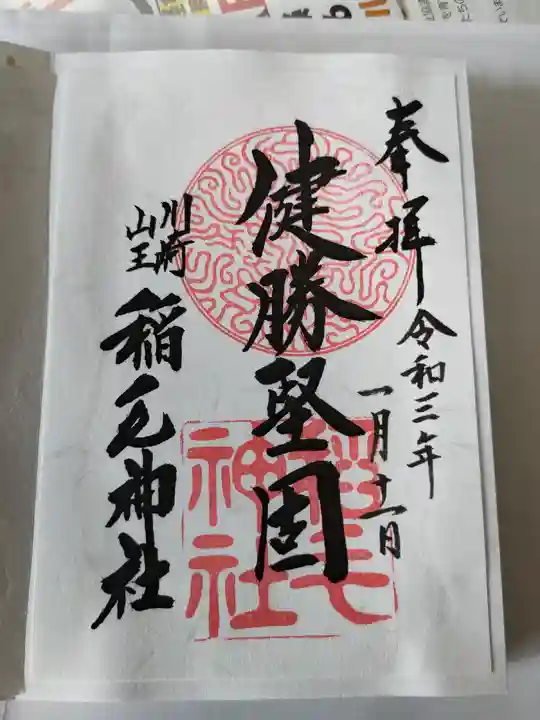 奉拝
令和三年
一月十一日
健勝堅固
川崎
山王
稲毛神社
稲毛
神社